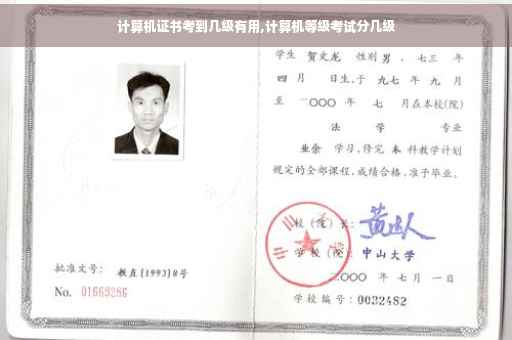 计算机证书考到几级有用,计算机等级考试分几级
学生 贺文龙 性别 男 、七三 年
四 月 日生,于 九七 年 九 月
至 二〇〇〇 年 七 月在本校(院)
法 学 专业
业余 学习,修完 本 科教学计划
规定的全部课程,成绩合格,准予毕业。
校(院)长:
学校(院): 中山大学
二〇〇〇 年 七 月 一 日
批准文号: 教直[1993]8号
No. 01669286
学校编号: 0032482